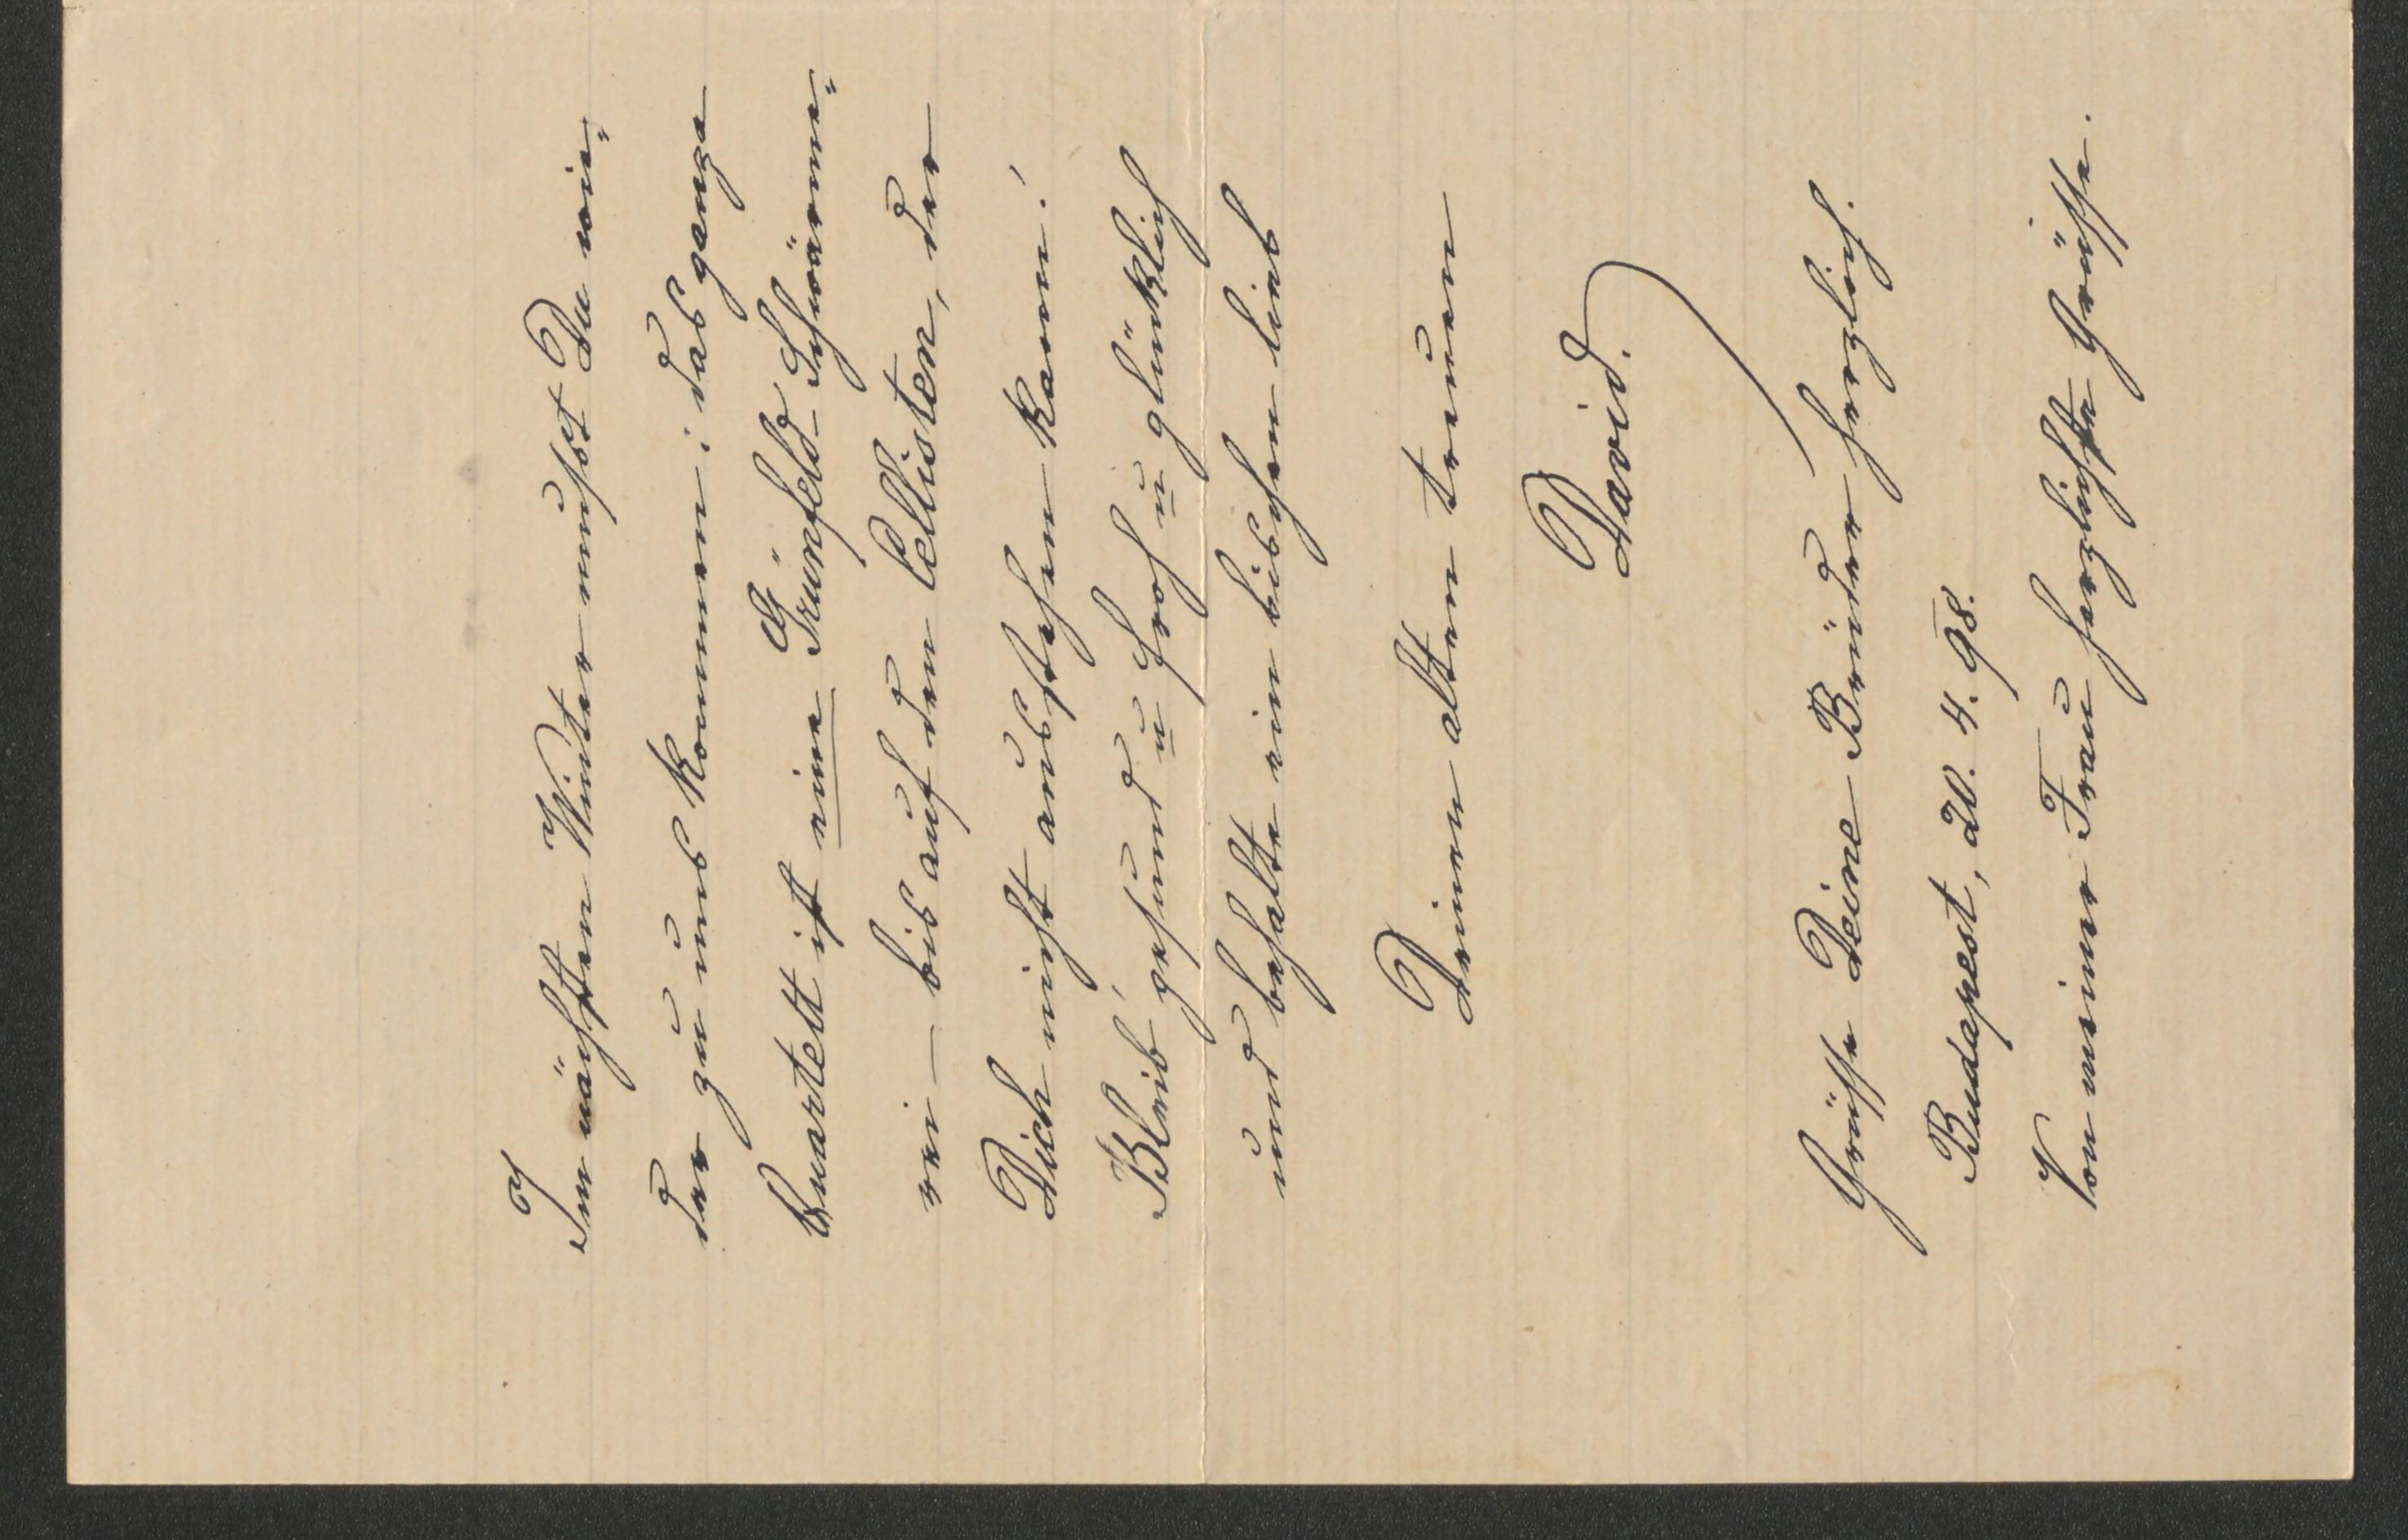 Im nächsten Winter mußst Du wie-
der zu uns kommen: das ganze
Quartett ist eine Grünfeld-Schwärme-
rei — bis auf den Cellisten, der
Dich nicht ausstehen kann!
Bleib' gesund u froh u glücklich
und behalte ein bischen lieb
Deinen alten treuen
David.
Grüsse Deine Brüder herzlich.
Budapest, 20. 4. 98.
Von meiner Frau herzlichste Grüsse.